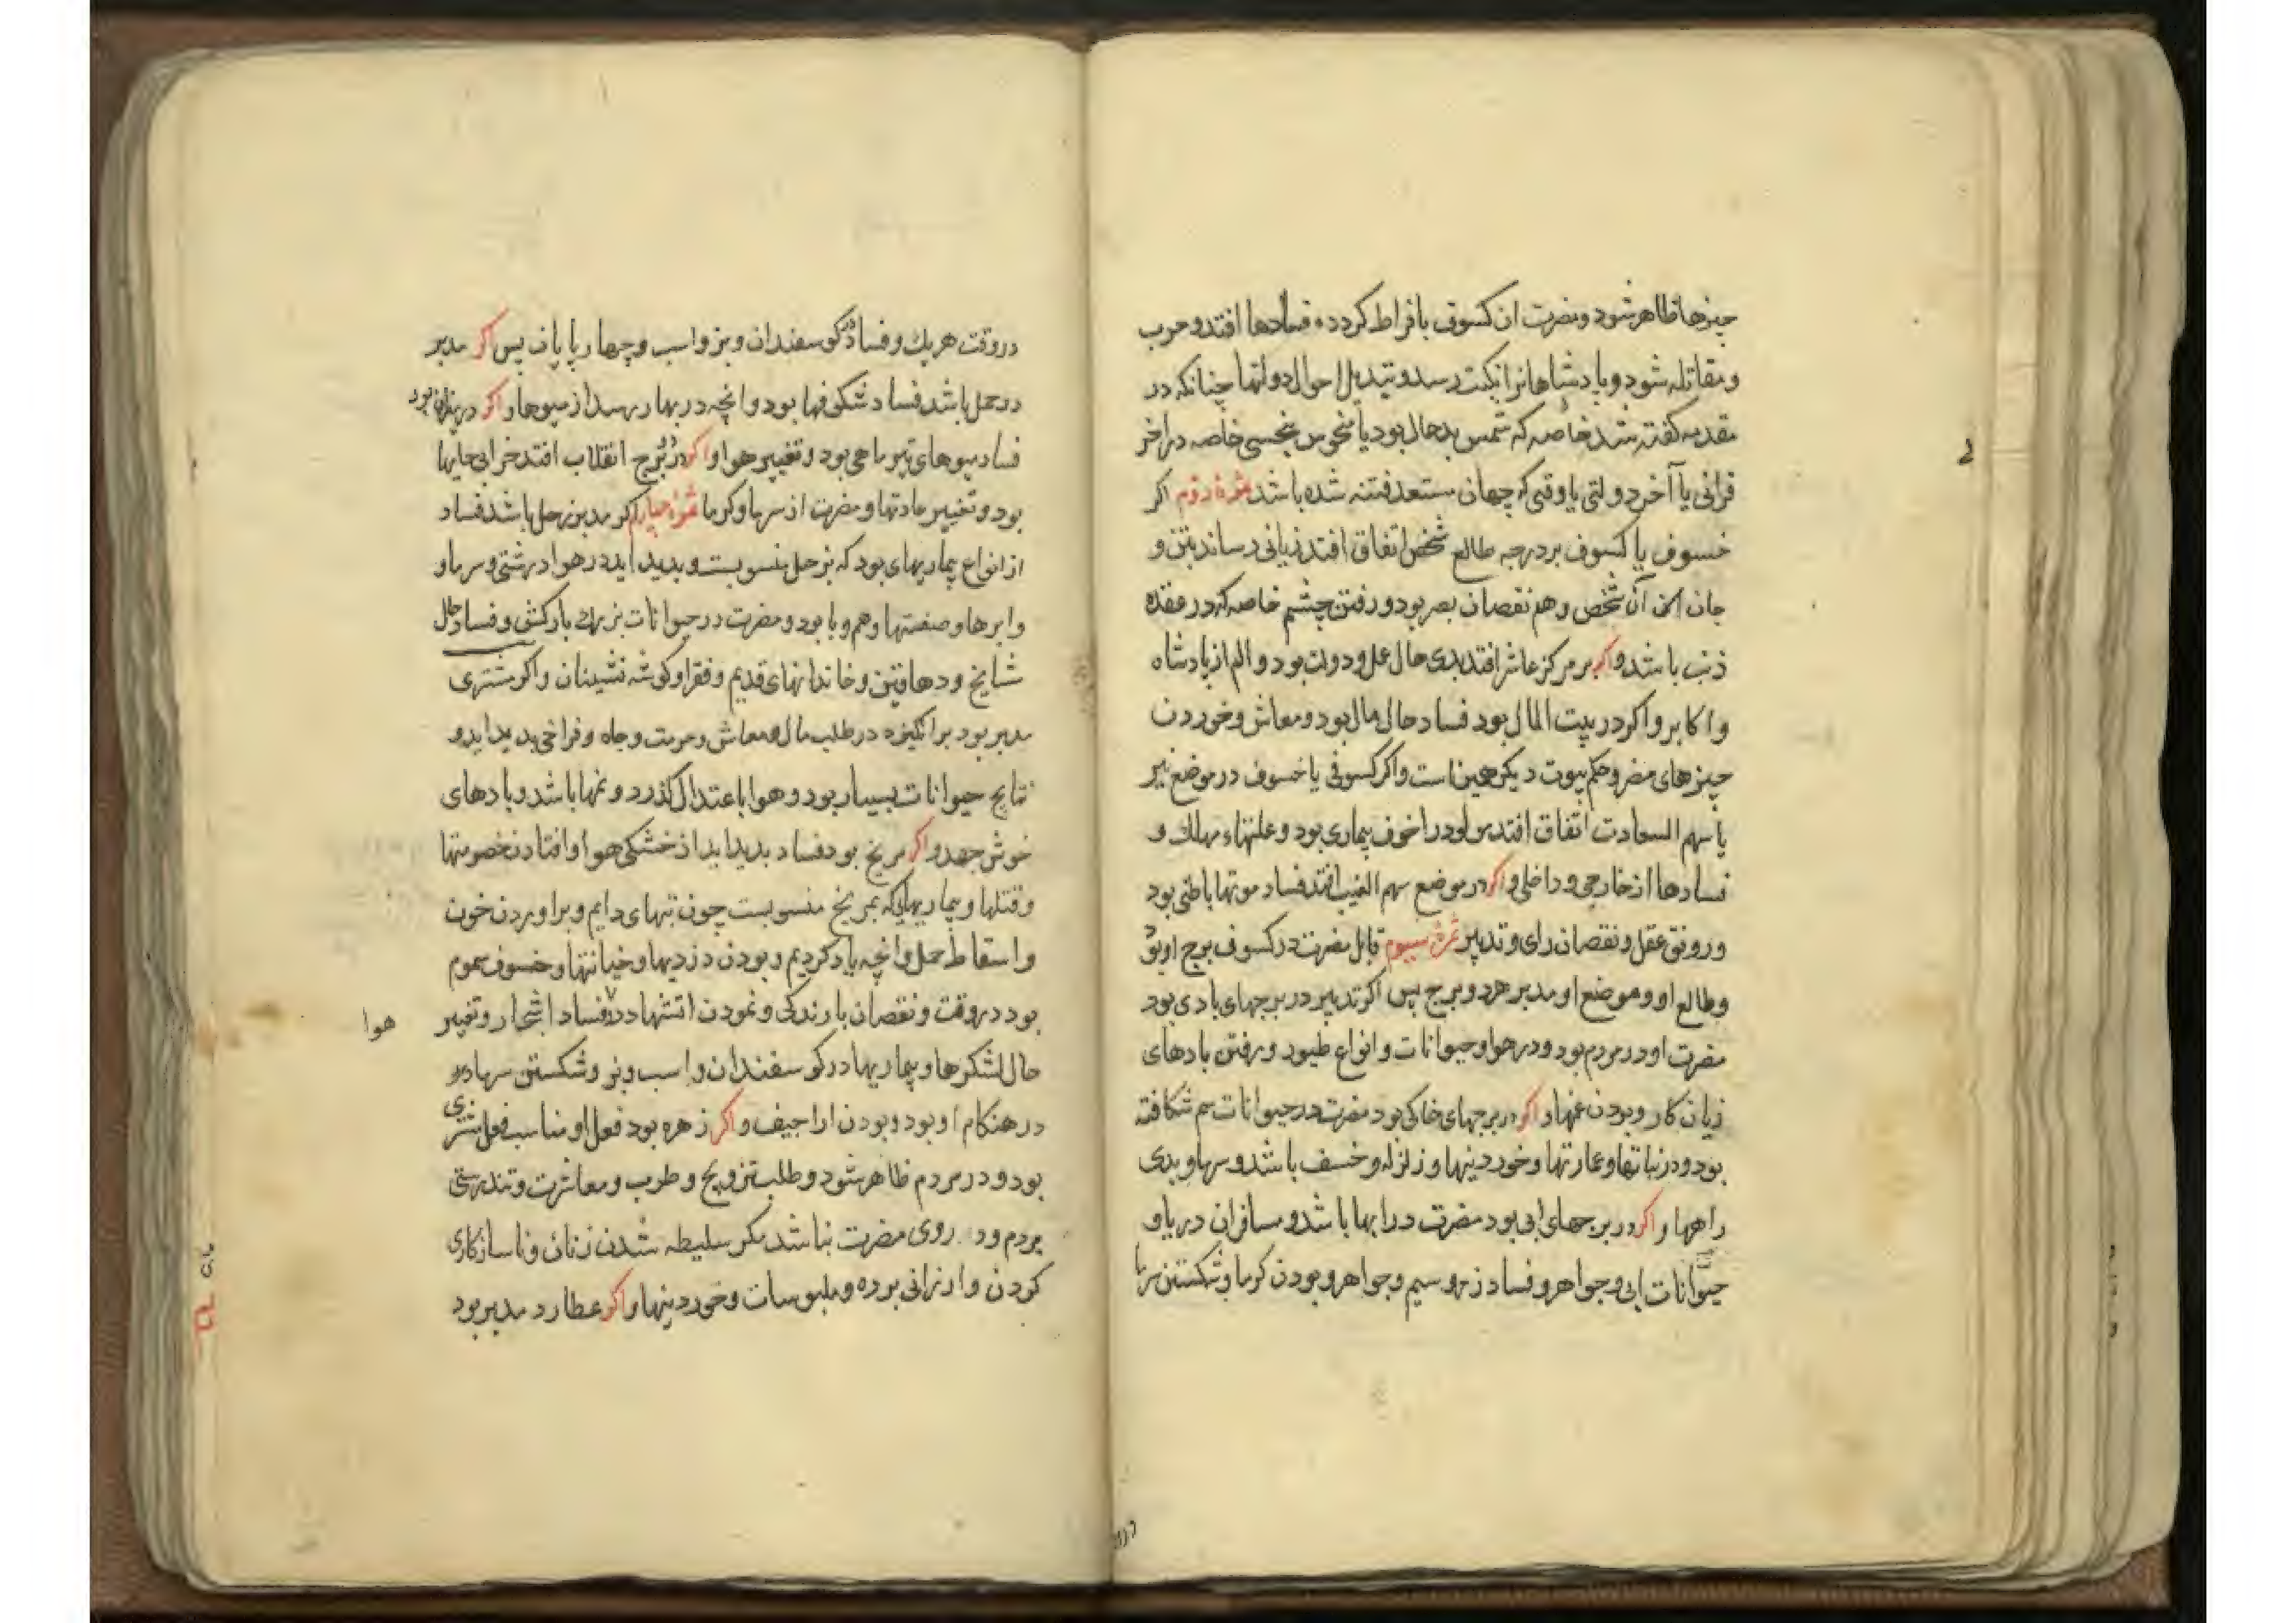 چیزها ظاهر شود و مضرت ان کسوف بافراط کردد و فسادها افتد و حرب
و مقاتله شود و پادشاهانرا نکبت رسد و تبدیل احوال دولتها چنانکه در
مقدمه کفته شد خاصه که شمس بدحال بود یا منحوس بنحسی خاصه در اخر
قرانی یا آخر دولتی یا وقتی که جهان مستعد فتنه شده باشد ثمرهٔ دوم اکر
خسوف یا کسوف بر درجه طالع شخص اتفاق افتد زیانی رساند بتن و
جان آن شخص و هم نقصان بصر بود و رفتن چشم خاصه که در عقده
ذنب باشد و اکر بر مرکز عاشر افتد بدی حال عمل و دولت بود و الم از پادشاه
و اکابر و اکر در بیت المال بود فساد حال مال بود و معاش و خوردن
چیزهای مضر و حکم بیوت دیکر همین است و اکر کسوفی یا خسوف در موضع نیر
یا سهم السعادت اتفاق افتد مولود را خوف بیماری بود و علتهاء مهلک و
فسادها از خارجی و داخلی و اکر در موضع سهم الغیب افتد فساد موتها باطنی بود
و رونق عقل و نقصان رای و تدبیر ثمرهٔ سیوم قابل مضرت در کسوف برج او بود
و طالع او و موضع او مدبر هر دو برج پس اکر تدبیر در برجهای بادی بود
مضرت او در مردم بود و در هوا و حیوانات و انواع طیور و رفتن بادهای
زیان کار و بودن غمها و اکر در برجهای خاکی بود مضرت در حیوانات سم شکافته
بود و در نباتها و عمارتها و خوردنیها و زلزله و خسف باشد و سرما و بدی
راهها و اکر در برجهای ابی بود مضرت در ابها باشد و مسافران دریا و
حیوانات ابی و جواهر و فساد زر و سیم و جواهر و بودن کرما و شکستن سرما
در وقت هر یک و فساد کوسفندان و بز و اسب و چهارپایان پس اکر مدبر
در حمل باشد فساد شکوفها بود و انچه در بهار رسد از میوها و اکر در میزان بود
فساد میوهای تیر ماهی بود و تغییر هوا و اکر در برج انقلاب افتد خرابی جایها
بود و تغییر عادتها و مضرت از سرما و کرما ثمرهٔ چهارم اکر مدبر زحل باشد فساد
از انواع بیماریهای بود که بزحل منسوبست و بدید اید در هوا درشتی و سرما و
و ابرها و صفتها و هم وبا بود و مضرت در حیوانات بزرک بارکش و فساد حال
مشایخ و دهاقین و خاندانهای قدیم و فقرا و کوشه نشینان و اکر مشتری
مدبر بود برانکیزد در طلب مال و معاش و حرمت و جاه و فراخی بدید اید و
نتایج حیوانات بسیار بود و هوا باعتدال کذرد و نمها باشد و بادهای
خوش جهد و اکر مریخ بود فساد بدید اید از خشکی هوا و افتادن خصومتها
و قتلها و بیماریهایی که بمریخ منسوبست چون تبهای دایم و براوردن خون
و اسقاط حمل و انچه یاد کردیم و بودن دزدیها و خیانتها و خسوف سموم
بود در وقت و نقصان بارندکی و نمودن اتشها در فساد اشجار و تغییر
هوا
حال لشکرها و بیماریها در کوسفندان و اسب و بز و شکستن سرما در
در هنکام او بود و بودن اراجیف و اکر زهره بود فعل او مناسب فعل مشتری
بود و در مردم ظاهر شود و طلب تزویج و طرب و معاشرت و تندرستی
مردم و روی مضرت نباشد مکر سلیطه شدن زنان و ناسازکاری
کردن و ارزانی برده و ملبوسات و خوردینها و اکر عطارد مدبر بود